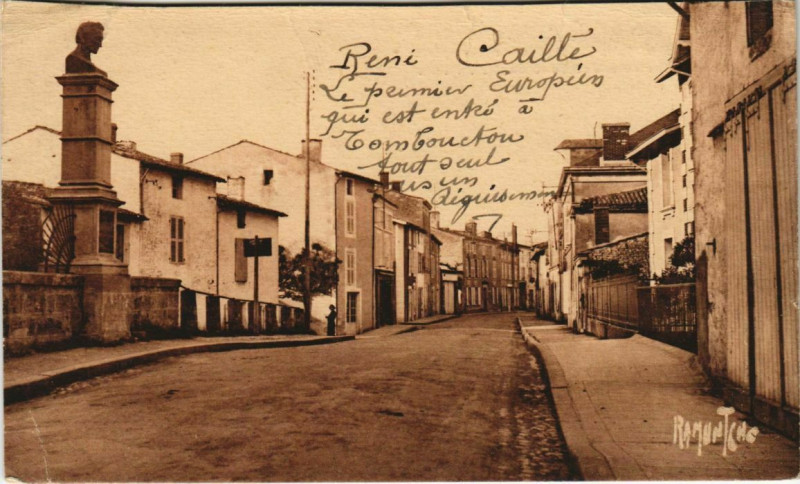 René Caillé
Le premier Européen
qui est entré à
Tombouctou
tout seul
sous un
déguisement
RAMUNTCHO